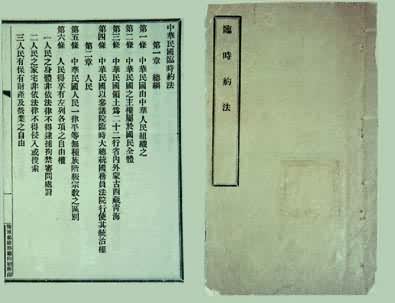 臨時約法
中華民國臨時約法
第一章 總綱
第一條 中華民國由中華人民組織之
第二條 中華民國之主權屬於國民全體
第三條 中華民國領土為二十二行省內外蒙古西藏青海
第四條 中華民國以參議院臨時大總統國務員法院行使其統治權
第二章 人民
第五條 中華民國人民一律平等無種族階級宗教之區別
第六條 人民得享有左列各項之自由權
一人民之身體非依法律不得逮捕拘禁審問處罰
二人民之家宅非依法律不得侵入或搜索
三人民有保有財產及營業之自由